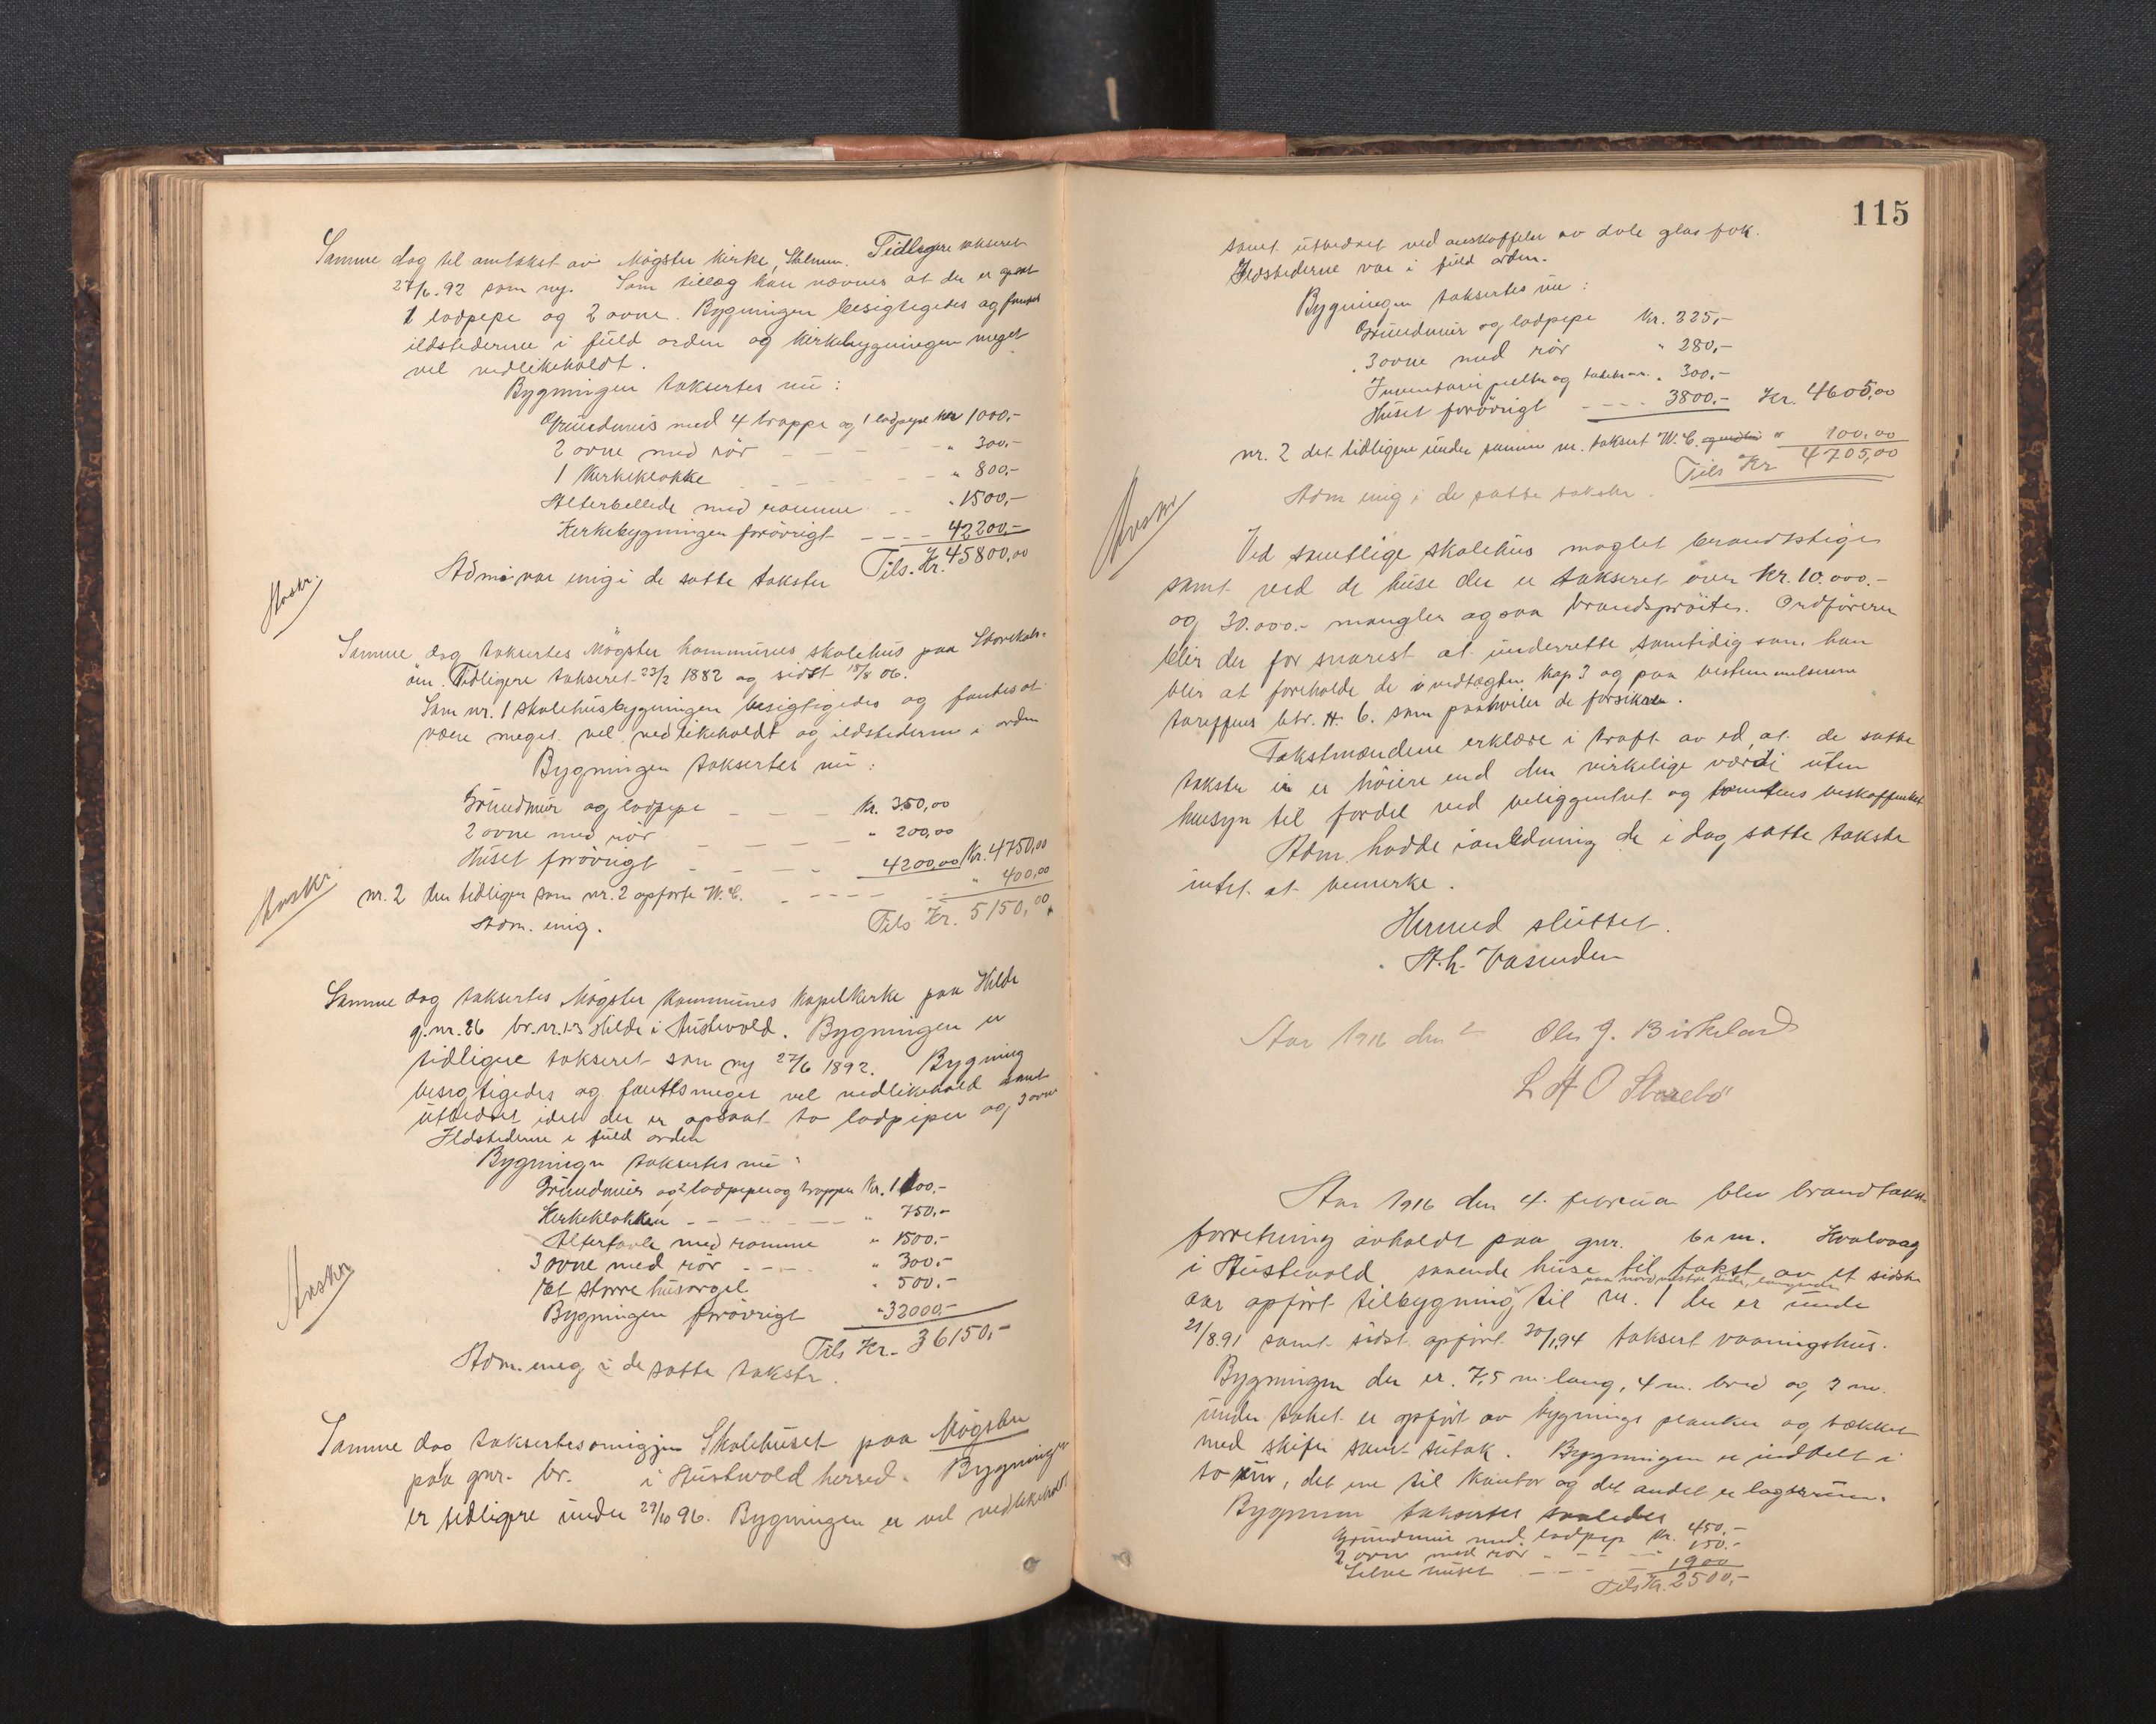 Samme dag til omtakst av Møgster kirke, Tidligere takseret
27/6.92 som ny. Som tillæg kan nævnes at der er
1 ladpipe og 2 ovne. Bygningen besigtigedes og fandtes
ildstederne i fuld orden og kirkebygningen meget
vel vedlikeholdt.
Bygningen taksertes nu:
Grundmur med 4 trappe og 1 ladpipe Kr 1000,-
2 ovne med rør - - - - " 300,-
1 Kirkeklokke - - - - " 800,-
Alterbillede med ramme - - " 1500,-
Kirkebygningen forøvrigt - - - - 42200,-
Tils. Kr. 45800,00
Adm. var enig i de satte takster
Avskr.
Samme dag taksertes Møgster kommunes skolehus paa Storekals-
øen. Tidligere takseret 23/2 1882 og sidst 18/8 06.
Som nr. 1 skolehusbygningen besigtigedes og fandtes at
være meget vel vedlikeholdt og ildstederne i orden
Bygningen taksertes nu:
Grundmur og ladpipe - - - Kr. 350,00
2 ovne med rør - - - - " 200,00
Huset forøvrigt - - - - 4200,00 Kr. 4750,00
nr. 2 den tidligere som nr. 2 opførte W.C. - - - - " 400,00
Tils Kr. 5150,00
Adm. enig.
Avskr.
Samme dag taksertes Møgster Kommunes Kapelkirke paa Hilde
g.nr. 26 br.nr. 1-3 Hilde i Austevold. Bygningen er
tidligere takseret som ny 27/6 1892. Bygning
besigtigedes og fandtes meget vel vedlikehold samt
utbedret idet der er opsat to ladpiper og 3 ovne
Ildstederne i fuld orden
Bygningen taksertes nu:
Grundmur og 2 ladpiper og trapper Kr. 1100,-
Kirkeklokken - - - - " 750,-
Altertavle med ramme " 1500,-
3 ovne med rør - - - " 300,-
Et større husorgel " 500,-
Bygningen forøvrigt " 32000,-
Tils Kr. 36150,-
Adm. enig i de satte takster.
Avskr
Samme dag taksertes omigjen Skolehuset paa Møgster
paa gnr. br. i Austevold herred. Bygningen
er tidligere under 29/10 96. Bygningen er vel vedlikeholdt
115
samt utbedret ved anskaffelse av dole glas fok.
Ildstederne var i fuld orden.
Bygningen taksertes nu:
Grundmur og ladpipe Kr. 225,-
3 ovne med rør " 280,-
Inventar: pulter og " 300,-
Huset forøvrigt - - - - 3800,- Kr. 4605,00
nr. 2 det tidligere under samme nr. taksert W.C. " 100,00
Tils Kr 4705,00
Adm enig i de satte takster.
Avskr
Ved samtlige skolehus manglet brandstiger
samt ved de huse der er takseret over Kr. 10.000.-
og 30.000.- mangler ogsaa brandsprøiter. Ordføreren
blir der for snarest at underrette samtidig som han
blir at foreholde de i vedtægten Kap 3 og paa bestemmelserne
tariffens litr. A. 6. som paahviler de forsikrede.
Takstmændene erklære i kraft av ed, at de satte
takster ei er høiere end den virkelige værdi uten
hensyn til fordel ved beliggenhet og tomtens beskaffenhet
Adm. hadde i anledning de i dag satte takster
intet at bemerke.
Hermed sluttet.
A. h. Vasenden
Aar 1916 den 2 Ole J. Birkeland
L A O Storebø
Aar 1916 den 4. februar blev brandtakst-
forretning avholdt paa gnr. br nr. Hvalvaag
i Austevold. saaende huse til takst av et sidste
paa nordvestre side, længende
aar opført tilbygning til nr. 1 der er under
21/8.91 samt sidst opført 30/1.94 taksert vaaningshus.
Bygningen der er 7,5 m lang, 4 m. bred og 3 m.
under taket er opført av bygnings planker og tækket
med skifer samt sutak. Bygningen er inddelt i
to rum, det ene til Kontor og det andet er lagerrum.
Bygningen taksertes saaledes
Grundmur med ladpipe Kr. 450,-
2 ovne med rør - - - - 150.-
Selve huset - - - - 1900
Tils Kr. 2500,-